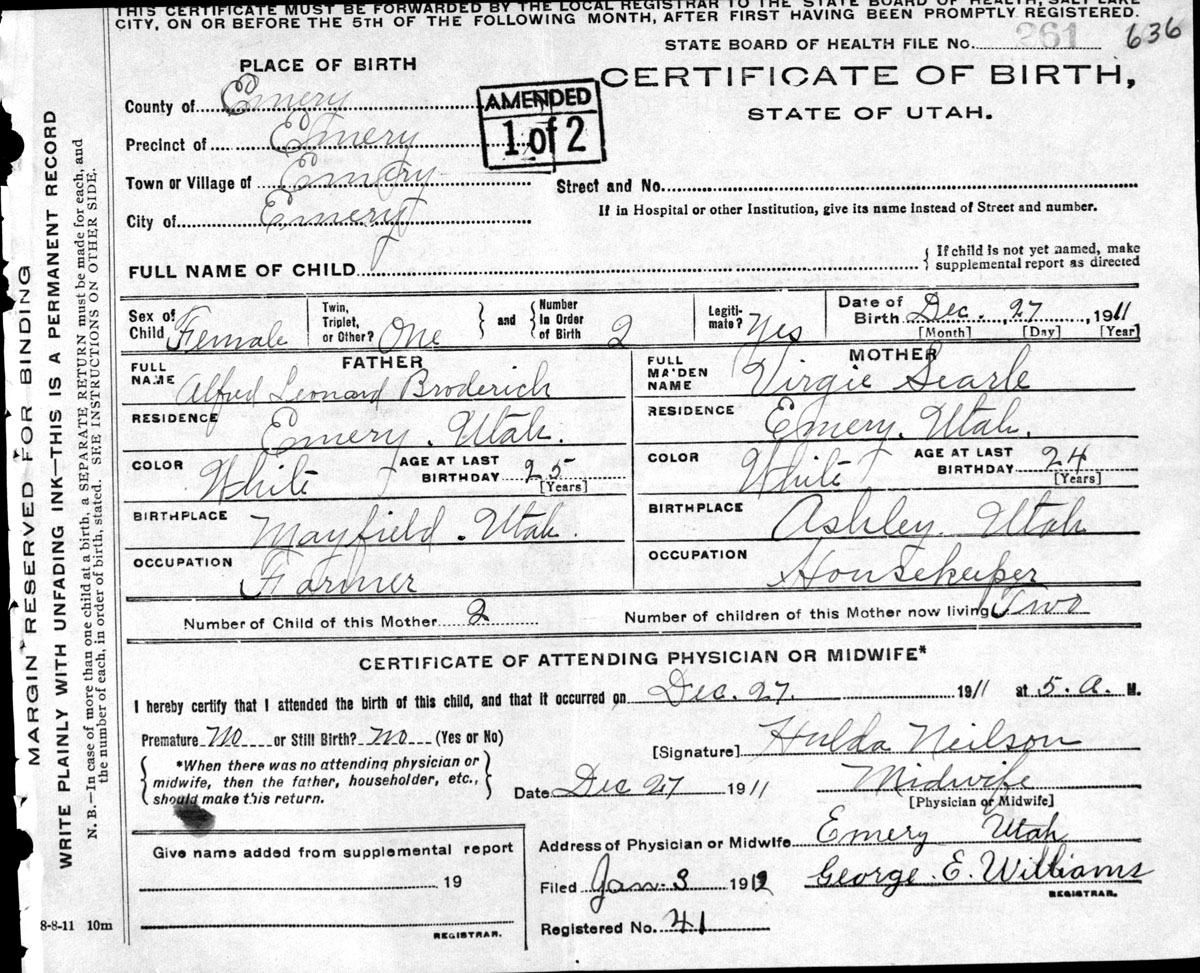 THIS CERTIFICATE MUST BE FORWARDED BY THE LOCAL REGISTRAR TO THE STATE BOARD OF HEALTH, SALT LAKE
CITY, ON OR BEFORE THE 5TH OF THE FOLLOWING MONTH, AFTER FIRST HAVING BEEN PROMPTLY REGISTERED.
STATE BOARD OF HEALTH FILE No. 261 636
PLACE OF BIRTH
CERTIFICATE OF BIRTH,
STATE OF UTAH.
County of Emery
AMENDED
1 of 2
Precinct of Emery
Town or Village of Emery
Street and No.
City of Emery
If in Hospital or other Institution, give its name instead of Street and number.
FULL NAME OF CHILD
If child is not yet named, make
supplemental report as directed
Sex of Child Female
Twin, Triplet, or Other? One
and Number In Order of Birth 2
Legitimate? Yes
Date of Birth Dec. 27, 1911
[Month] [Day] [Year]
FATHER
FULL NAME Alfred Leonard Broderich
MOTHER
FULL MAIDEN NAME Virgie Searle
RESIDENCE Emery. Utah.
RESIDENCE Emery. Utah.
COLOR White AGE AT LAST BIRTHDAY 25
[Years]
COLOR White AGE AT LAST BIRTHDAY 24
[Years]
BIRTHPLACE Mayfield. Utah.
BIRTHPLACE Ashley. Utah
OCCUPATION Farmer
OCCUPATION Housekeeper
Number of Child of this Mother 2 Number of children of this Mother now living Two
CERTIFICATE OF ATTENDING PHYSICIAN OR MIDWIFE*
I hereby certify that I attended the birth of this child, and that it occurred on Dec. 27. 1911 at 5. a. M.
Premature No or Still Birth? No (Yes or No)
[Signature] Hulda Neilson
*When there was no attending physician or
midwife, then the father, householder, etc.,
should make this return.
Date Dec 27 1911 Midwife
[Physician or Midwife]
Give name added from supplemental report
19
REGISTRAR.
Address of Physician or Midwife Emery Utah
Filed Jan. 3 1912 George. E. Williams
REGISTRAR.
Registered No. 41
8-8-11 10m
MARGIN RESERVED FOR BINDING
WRITE PLAINLY WITH UNFADING INK—THIS IS A PERMANENT RECORD
N. B.—In case of more than one child at a birth, a SEPARATE RETURN must be made for each, and
the number of each, in order of birth, stated. SEE INSTRUCTIONS ON OTHER SIDE.